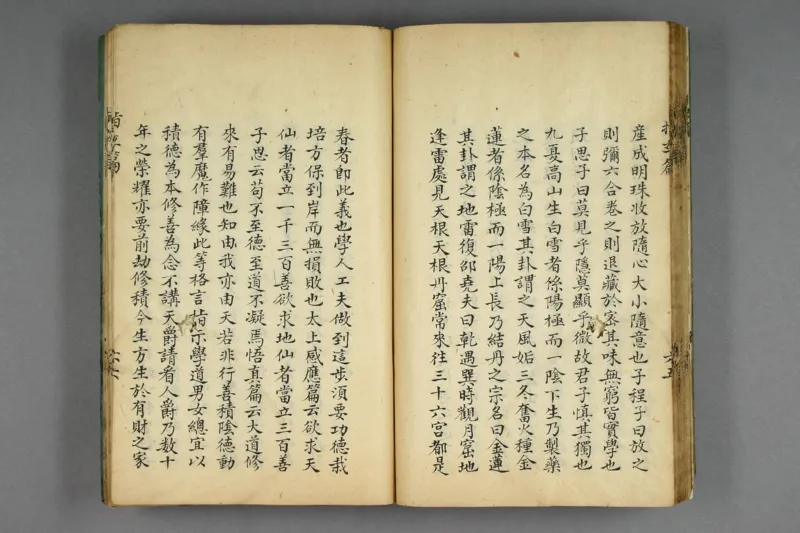 產成明珠收放隨心大小隨意也子程子曰放之
則彌六合卷之則退藏於宻其味無窮皆實學也
子思子曰莫見乎隱莫顯乎微故君子慎其獨也
九夏高山生白雪者係陽極而一陰下生乃製藥
之本名為白雪其卦謂之天風姤三冬奮火種金
蓮者係陰極而一陽上長乃結丹之宗名曰金蓮
其卦謂之地雷復邵堯夫曰乾遇巽時觀月窟地
逢雷處見天根天根丹窟常來往三十六宮都是
春者即此義也學人工夫做到這步須要功德栽
培方保到岸而無損敗也太上感應篇云欲求天
仙者當立一千三百善欲求地仙者當立三百善
子思云苟不至德至道不凝焉悟真篇云大道修
來有易難也知由我亦由天若非行善積陰德動
有羣魔作障緣此等格言指示學道男女總宜以
積德為本修善為念不講天爵請看人爵乃数十
年之榮耀亦要前劫修積今生方生於有財之家